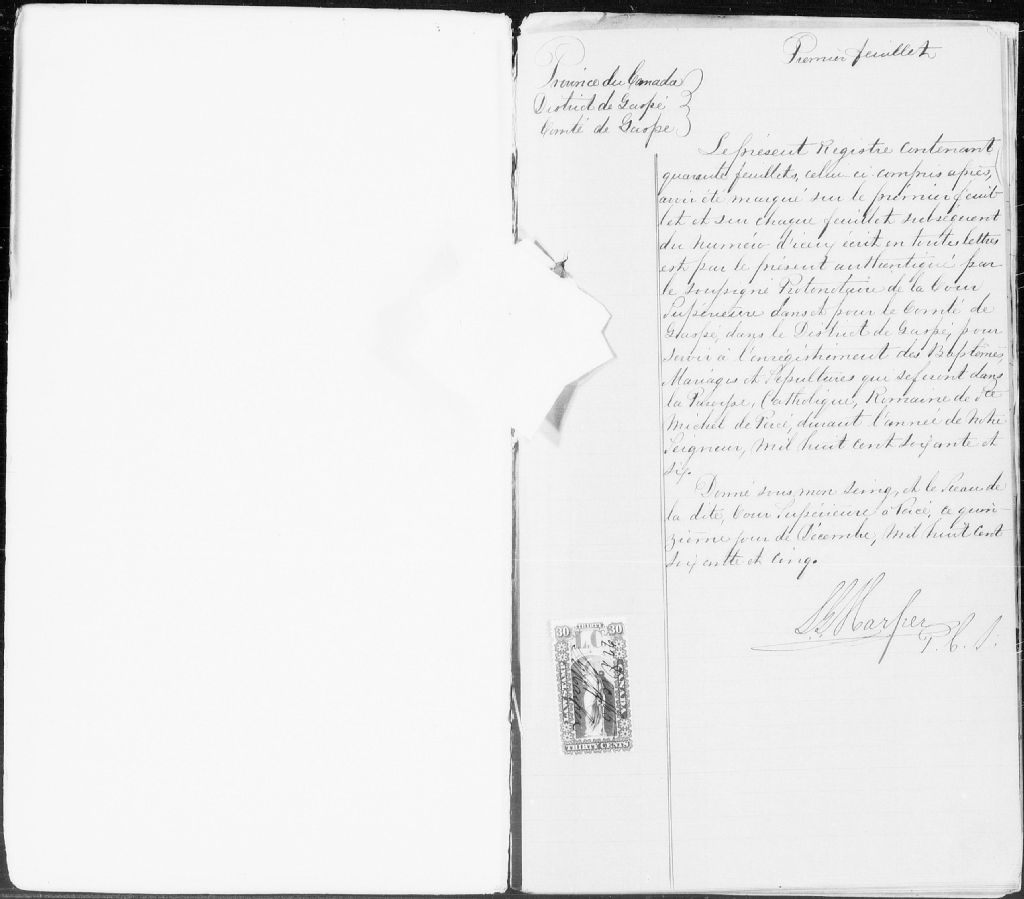 Premier feuillet
Province du Canada
District de Gaspé
Comté de Gaspé
Le présent Registre contenant
quarante feuillets, celui ci compris après,
avoir été marqué sur le prémier feuil-
let et sur chaque feuillet subséquent
du numéro d'iceux écrit en toutes lettres
est par le présent authentiqué par
le soussigné Protonotaire de la Cour
Supérieure dans et pour le Comté de
Gaspé, dans le District de Gaspé, pour
servir à l'enrégistrement des Baptêmes,
Mariages et Sépultures qui se feront dans
la Paroisse, Catholique, Romaine de Ste
Michel de Percé, durant l'année de Notre
Seigneur, Mil huit cent soixante et
six.
Donné sous mon seing, et le Sceau de
la dite, Cour Supérieure à Percé, ce quin-
zième jour de Décembre, Mil huit cent
soixante et cinq.
LG Harper
P. C. S.
30 THIRTY 30
L C
THIRTY CENTS